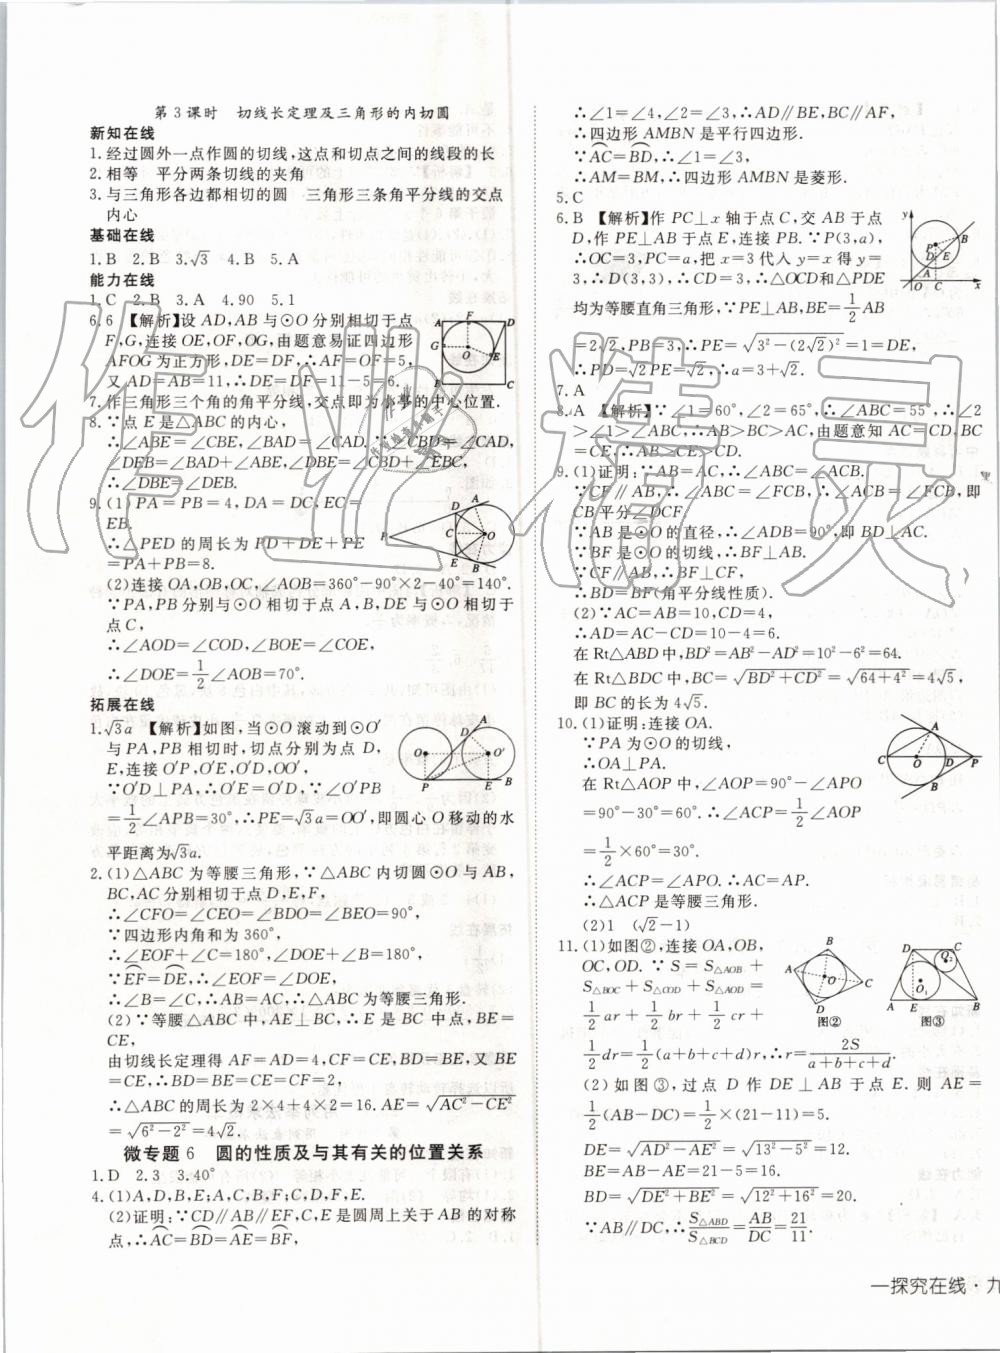 第3课时 切线长定理及三角形的内切圆
新知在线
1.经过圆外一点作圆的切线,这点和切点之间的线段的长
2.相等 平分两条切线的夹角
3.与三角形各边都相切的圆 三角形三条角平分线的交点
内心
基础在线
1.B 2.B 3.√3 4.B 5.A
能力在线
1.C 2.B 3.A 4.90 5.1
6.6 【解析】设AD,AB与⊙O分别相切于点
F,G,连接OE,OF,OG,由题意易证四边形
AFOG为正方形,DE=DF,∴AF=OF=5,
又AD=AB=11,∴DE=DF=11-5=6.
7.作三角形三个角的角平分线,交点即为小亭的中心位置.
8.∵点E是△ABC的内心,
∴∠ABE=∠CBE,∠BAD=∠CAD.∵∠CBD=∠CAD,
∠DEB=∠BAD+∠ABE,∠DBE=∠CBD+∠EBC,
∴∠DBE=∠DEB.
9.(1)PA=PB=4,DA=DC,EC=
EB.
∴△PED的周长为PD+DE+PE
=PA+PB=8.
(2)连接OA,OB,OC,∠AOB=360°-90°×2-40°=140°.
∵PA,PB分别与⊙O相切于点A,B,DE与⊙O相切于
点C,
∴∠AOD=∠COD,∠BOE=∠COE,
∴∠DOE=1/2∠AOB=70°.
拓展在线
1.√3a 【解析】如图,当⊙O滚动到⊙O′
与PA,PB相切时,切点分别为点D,
E,连接O′P,O′E,O′D,OO′,
∵O′D⊥PA,∴O′E=O′D,∵∠O′PB
=1/2∠APB=30°,∴PE=√3a=OO′,即圆心O移动的水
平距离为√3a.
2.(1)△ABC为等腰三角形,∵△ABC内切圆⊙O与AB,
BC,AC分别相切于点D,E,F,
∴∠CFO=∠CEO=∠BDO=∠BEO=90°,
∵四边形内角和为360°,
∴∠EOF+∠C=180°,∠DOE+∠B=180°,
∵EF⌒=DE⌒,∴∠EOF=∠DOE,
∴∠B=∠C,∴AB=AC,∴△ABC为等腰三角形.
(2)∵等腰△ABC中,AE⊥BC,∴E是BC中点,BE=
CE,
由切线长定理得AF=AD=4,CF=CE,BD=BE,又BE
=CE,∴BD=BE=CE=CF=2,
∴△ABC的周长为2×4+4×2=16.AE=√(AC²-CE²)
=√(6²-2²)=4√2.
微专题6 圆的性质及与其有关的位置关系
1.D 2.3 3.40°
4.(1)A,D,B,E;A,C,B,F;C,D,F,E.
(2)证明:∵CD∥AB∥EF,C,E是圆周上关于AB的对称
点,∴AC⌒=BD⌒=AE⌒=BF⌒,
∴∠1=∠4,∠2=∠3,∴AD∥BE,BC∥AF,
∴四边形AMBN是平行四边形.
∵AC⌒=BD⌒,∴∠1=∠3,
∴AM=BM,∴四边形AMBN是菱形.
5.C
6.B 【解析】作PC⊥x轴于点C,交AB于点
D,作PE⊥AB于点E,连接PB.∵P(3,a),
∴OC=3,PC=a,把x=3代入y=x得y=
3,∴D(3,3),∴CD=3,∴△OCD和△PDE
均为等腰直角三角形,∵PE⊥AB,BE=1/2AB
=2√2,PB=3,∴PE=√(3²-(2√2)²)=1=DE,
∴PD=√2PE=√2,∴a=3+√2.
7.A
8.A 【解析】∵∠1=60°,∠2=65°,∴∠ABC=55°,∴∠2
>∠1>∠ABC,∴AB>BC>AC,由题意知AC=CD,BC
=CE,∴AB>CE>CD.
9.(1)证明:∵AB=AC,∴∠ABC=∠ACB.
∵CF∥AB,∴∠ABC=∠FCB,∴∠ACB=∠FCB,即
CB平分∠DCF.
∵AB是⊙O的直径,∴∠ADB=90°,即BD⊥AC.
∵BF是⊙O的切线,∴BF⊥AB.
∵CF∥AB,∴BF⊥CF,
∴BD=BF(角平分线性质).
(2)∵AC=AB=10,CD=4,
∴AD=AC-CD=10-4=6.
在Rt△ABD中,BD²=AB²-AD²=10²-6²=64.
在Rt△BDC中,BC=√(BD²+CD²)=√(64+4²)=4√5,
即BC的长为4√5.
10.(1)证明:连接OA.
∵PA为⊙O的切线,
∴OA⊥PA.
在Rt△AOP中,∠AOP=90°-∠APO
=90°-30°=60°.∴∠ACP=1/2∠AOP
=1/2×60°=30°.
∴∠ACP=∠APO.∴AC=AP.
∴△ACP是等腰三角形.
(2)1 (√2-1)
11.(1)如图②,连接OA,OB,
OC,OD.∵S=S△AOB+
S△BOC+S△COD+S△AOD=
1/2ar+1/2br+1/2cr+
1/2dr=1/2(a+b+c+d)r,∴r=2S/(a+b+c+d).
图② 图③
(2)如图③,过点D作DE⊥AB于点E.则AE=
1/2(AB-DC)=1/2×(21-11)=5.
DE=√(AD²-AE²)=√(13²-5²)=12.
BE=AB-AE=21-5=16.
BD=√(DE²+BE²)=√(12²+16²)=20.
∵AB∥DC,∴S△ABD/S△BCD=AB/DC=21/11.
一探究在线·九
作业精灵